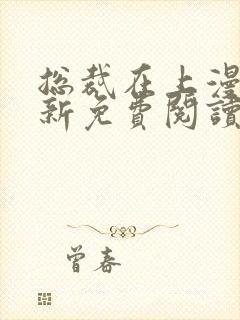 总裁在上漫
新免費閱讀
曾春